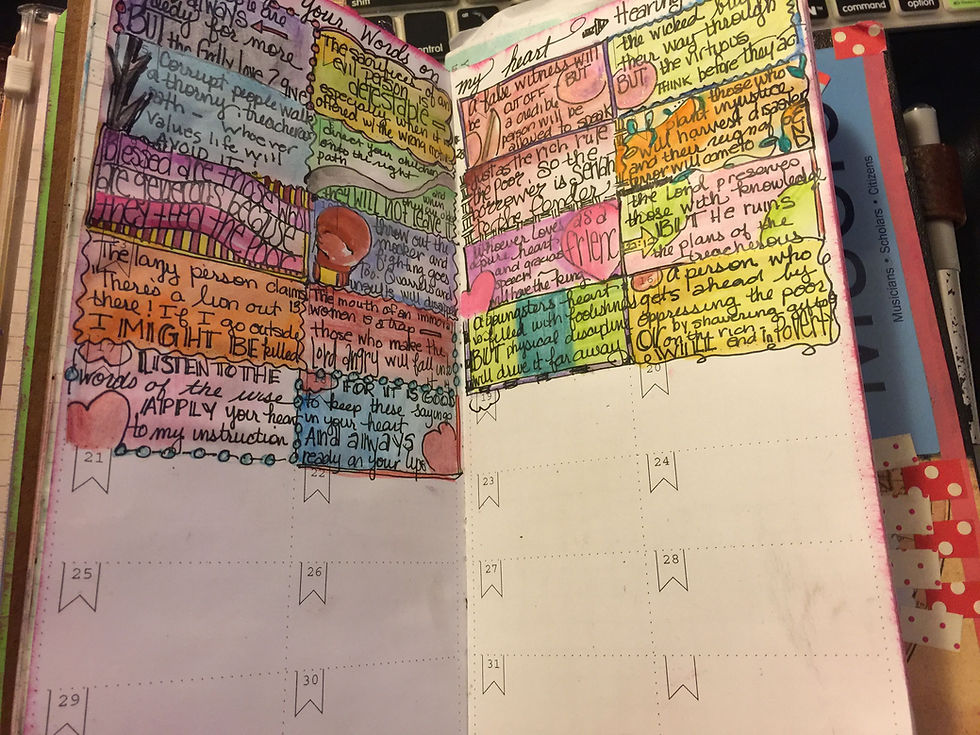 Your Words on
my heart
Hearing
people are
ALWAYS
greedy for more
BUT
the Godly love 2 give
Corrupt people walk
a thorny, treacherous
path
whoever
values life will
AVOID IT
blessed are those who
are generous because
they feed the poor
The lazy person claims
"There's a lion out
there! If I go outside
I MIGHT BE killed
LISTEN TO THE
words of the wise
APPLY your heart
to my instruction
The sacrifice of an
evil person is
detestable
especially when it is
offered w/ the wrong motives
direct your children
onto the right
path
and
when they are older
they will not leave it
throw out the
mocker and
fighting goes
too
quarrels and
insults will disappear
The mouth of an immoral
woman is a trap
those who make the
lord angry will fall into it
FOR IT IS GOOD
to keep these sayings
in your heart
And always
ready on your lips
a false witness will
be cut off
BUT
a credible
person will be
allowed to speak
Just as the rich rule
the poor so the
borrower is servant
to the lender
Whoever loves a
pure heart
and gracious
speech
will have the king
as a
friend
a youngsters heart
is filled with foolishness
BUT physical discipline
will drive it far away
the wicked bluff
their way through
BUT
the virtuous
THINK before they act
those who
plant injustice
will harvest disaster
and their reign of
terror will come to
an
END
the Lord preserves
those with knowledge
22:12
BUT He ruins
the plans of the
treacherous
A person who
gets ahead by
oppressing the poor
OR by showering gifts
on the rich
WILL end in Poverty
19
20
21
22
23
24
25
26
27
28
29
30
31
shift
control
command
option
Musicians • Scholars • Citizens